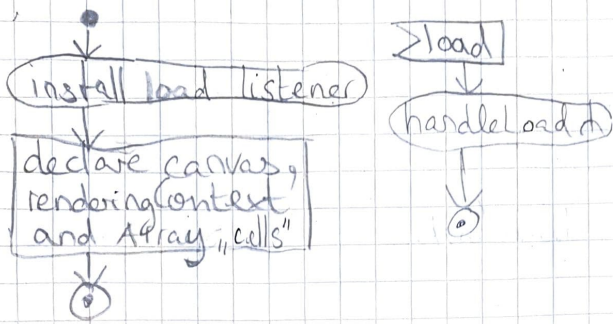 install load listener
declare canvas,
renderingContext
and Array „cells"
load
handleLoad